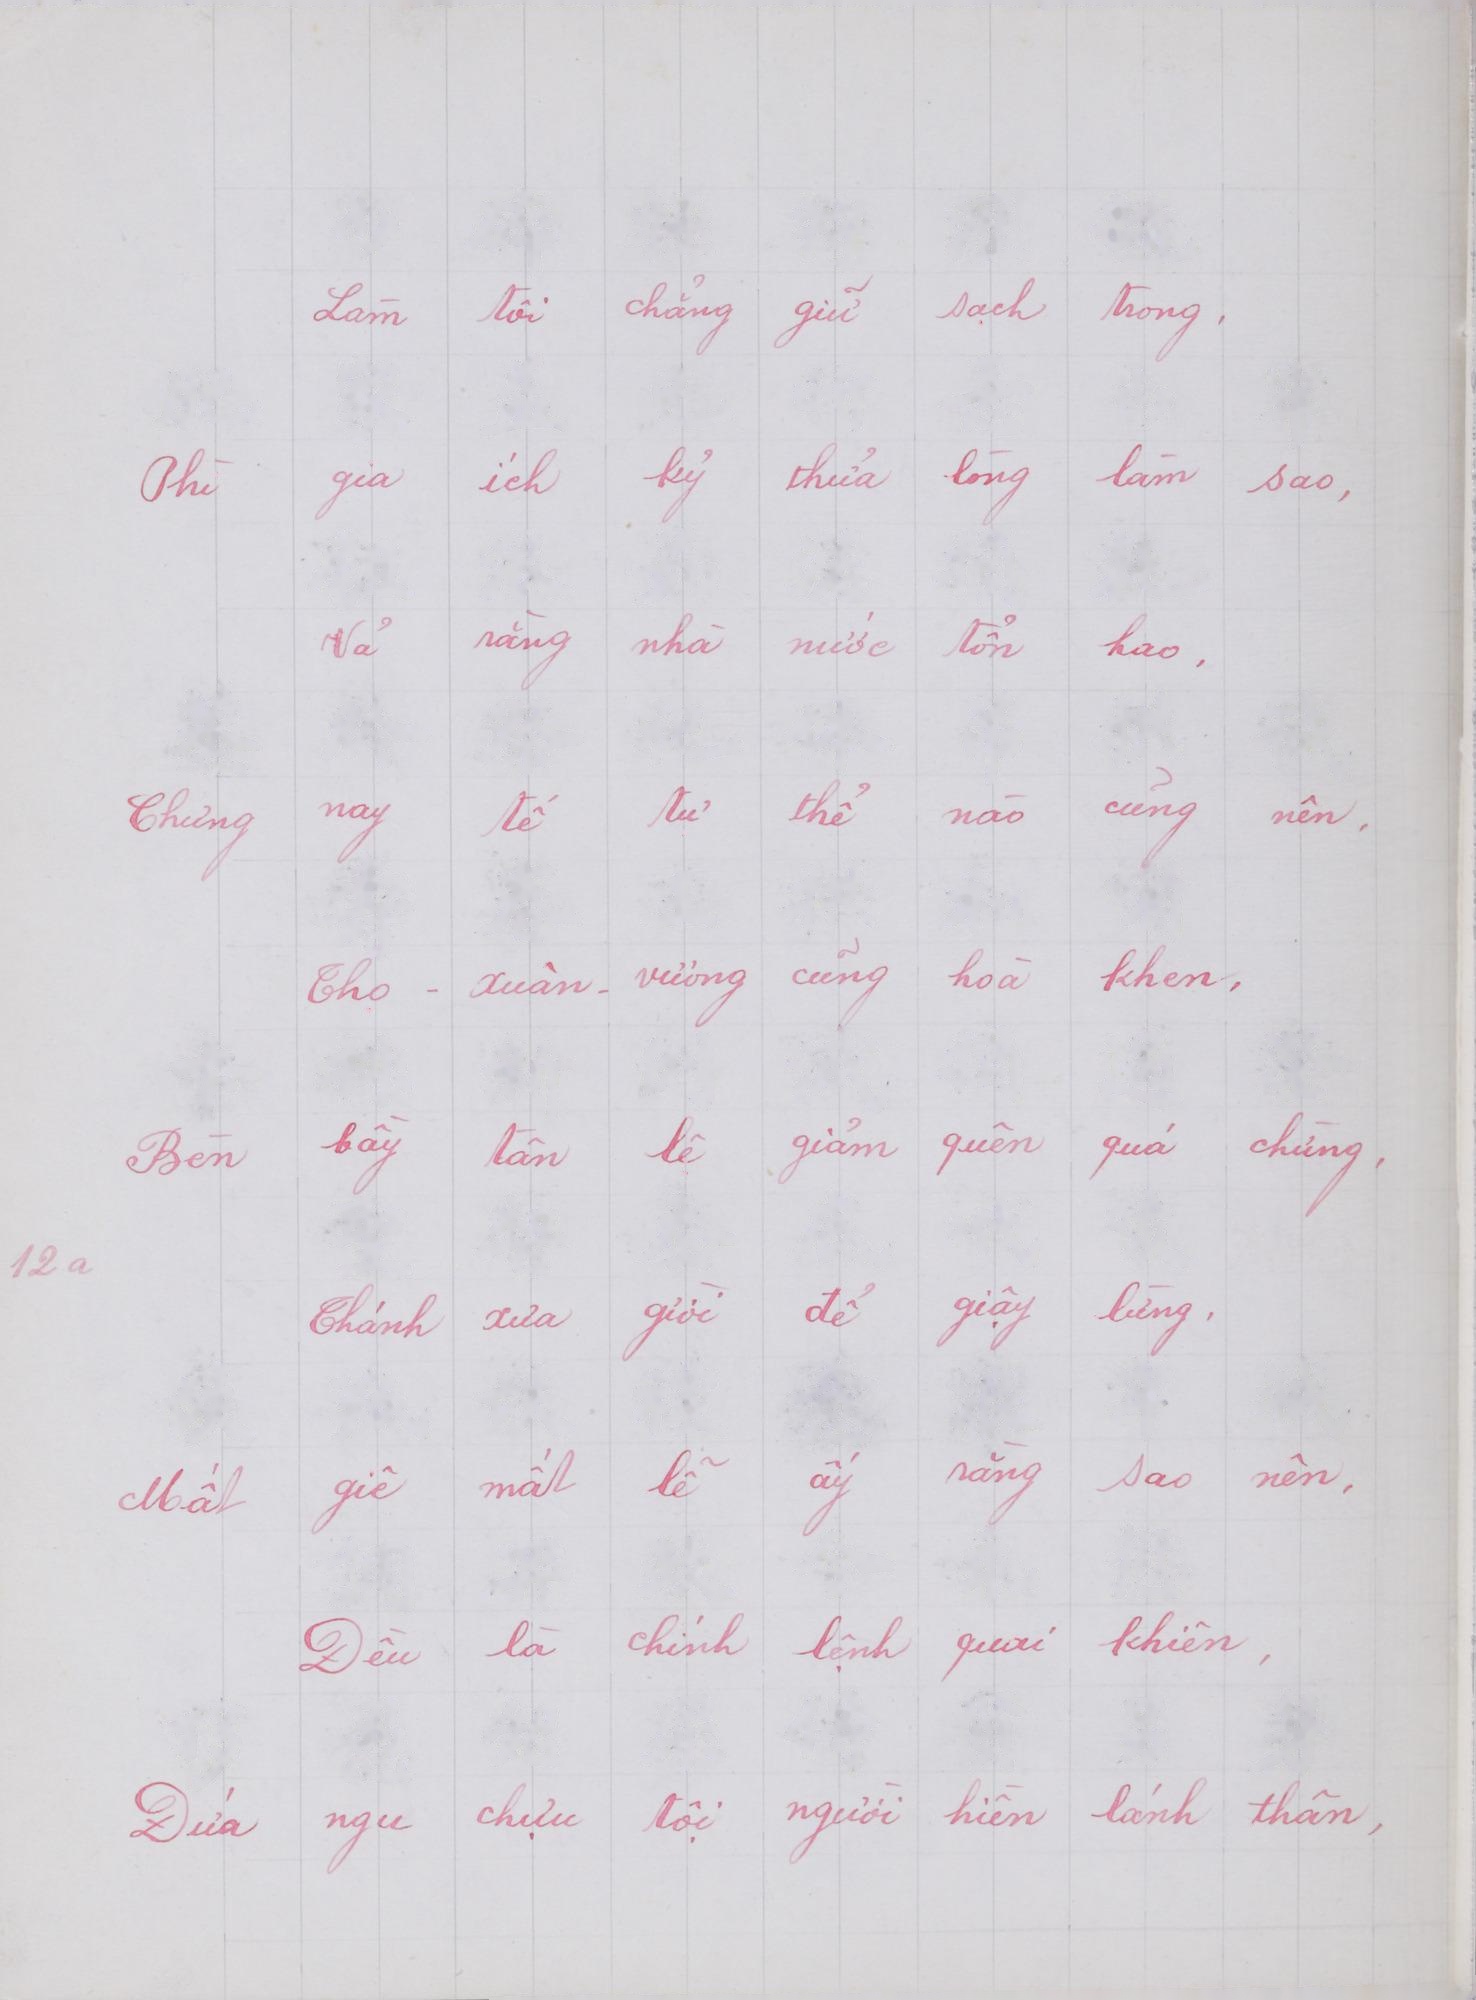 Làm tôi chẳng giữ sạch trong,
Phì gia ích kỷ thửa lòng làm sao,
Vả rằng nhà nước tổn hao,
Chưng nay tế tự thể nào cửng nên,
Thọ - xuân - vương cũng hoà khen,
Bèn bầy tân lê giảm quên quá chừng,
12 a
Thánh xưa giời để giậy lừng,
Mất giê mất lễ ấy rằng sao nên,
Đều là chính lệnh quai khiên,
Đứa ngu chựu tội người hiền lánh thân,